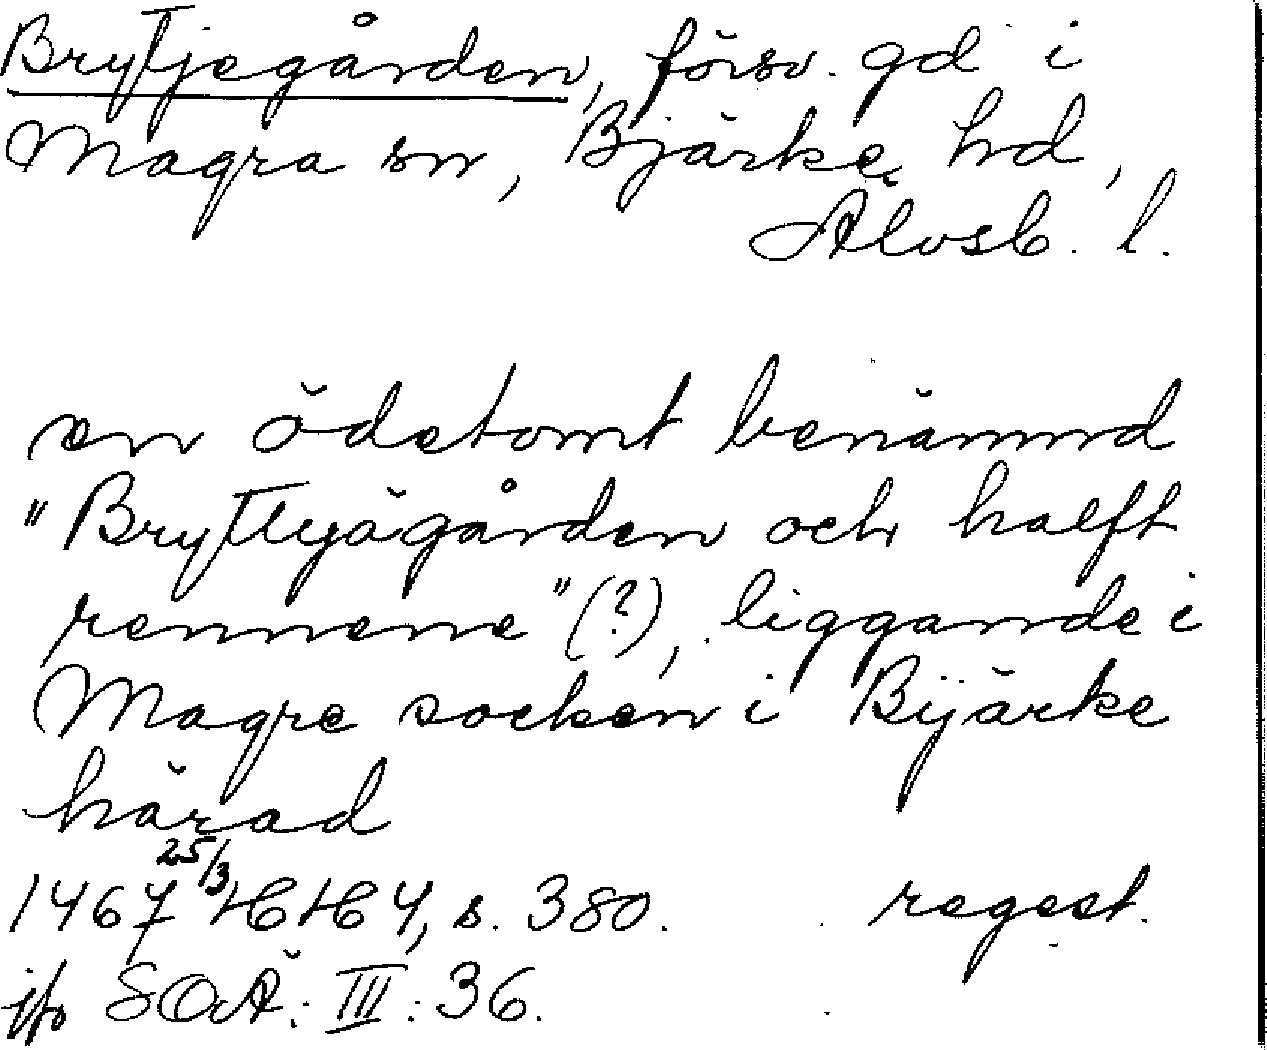 Brytjegården, försv. gd i
Magra sn, Bjärke hd,
Älvsb. l.
en ödetomt benämnd
"Bryttyägården och halft
rennene" (?), liggande i
Magre socken i Bijärke
härad
1467 25/3 HH 4, s. 380. regest.
jfr SOÄ: III: 36.